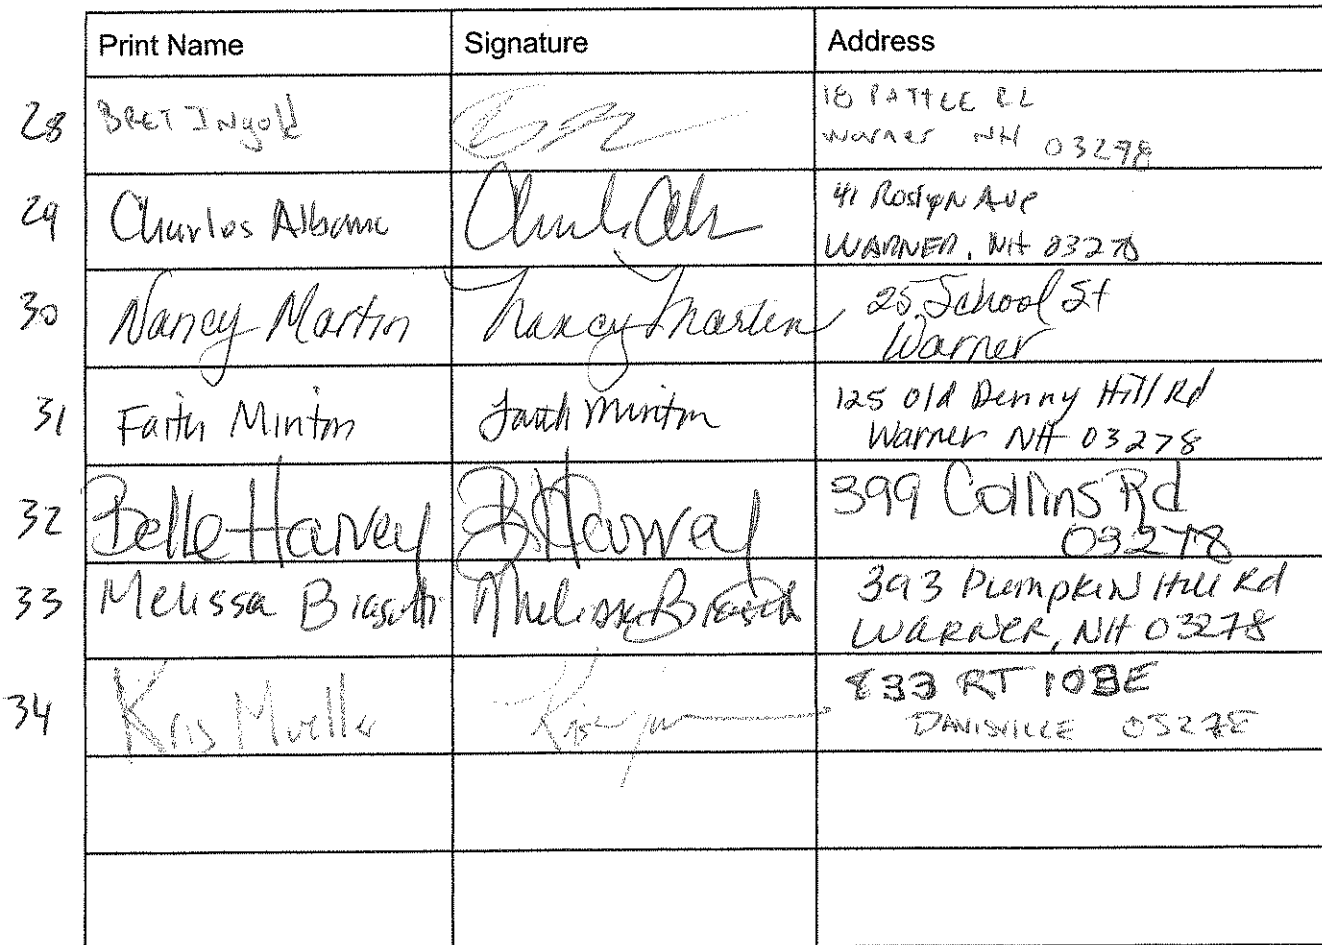 Print Name Signature Address
28 BRET INgold
Warner NH 03278
29 Charles Albano
41 Roslyn Ave
WARNER, NH 03278
30 Nancy Martin Nancy Martin 25 School St
Warner
31 Faith Minton Faith Minton 125 Old Denny Hill Rd
Warner NH 03278
32 Belle Harvey B Harvey 399 Collins Rd
03278
33 Melissa Biasotti Melissa Biasotti 393 Pumpkin Hill Rd
WARNER, NH 03278
34 Kris Mueller 833 RT 103E
03278